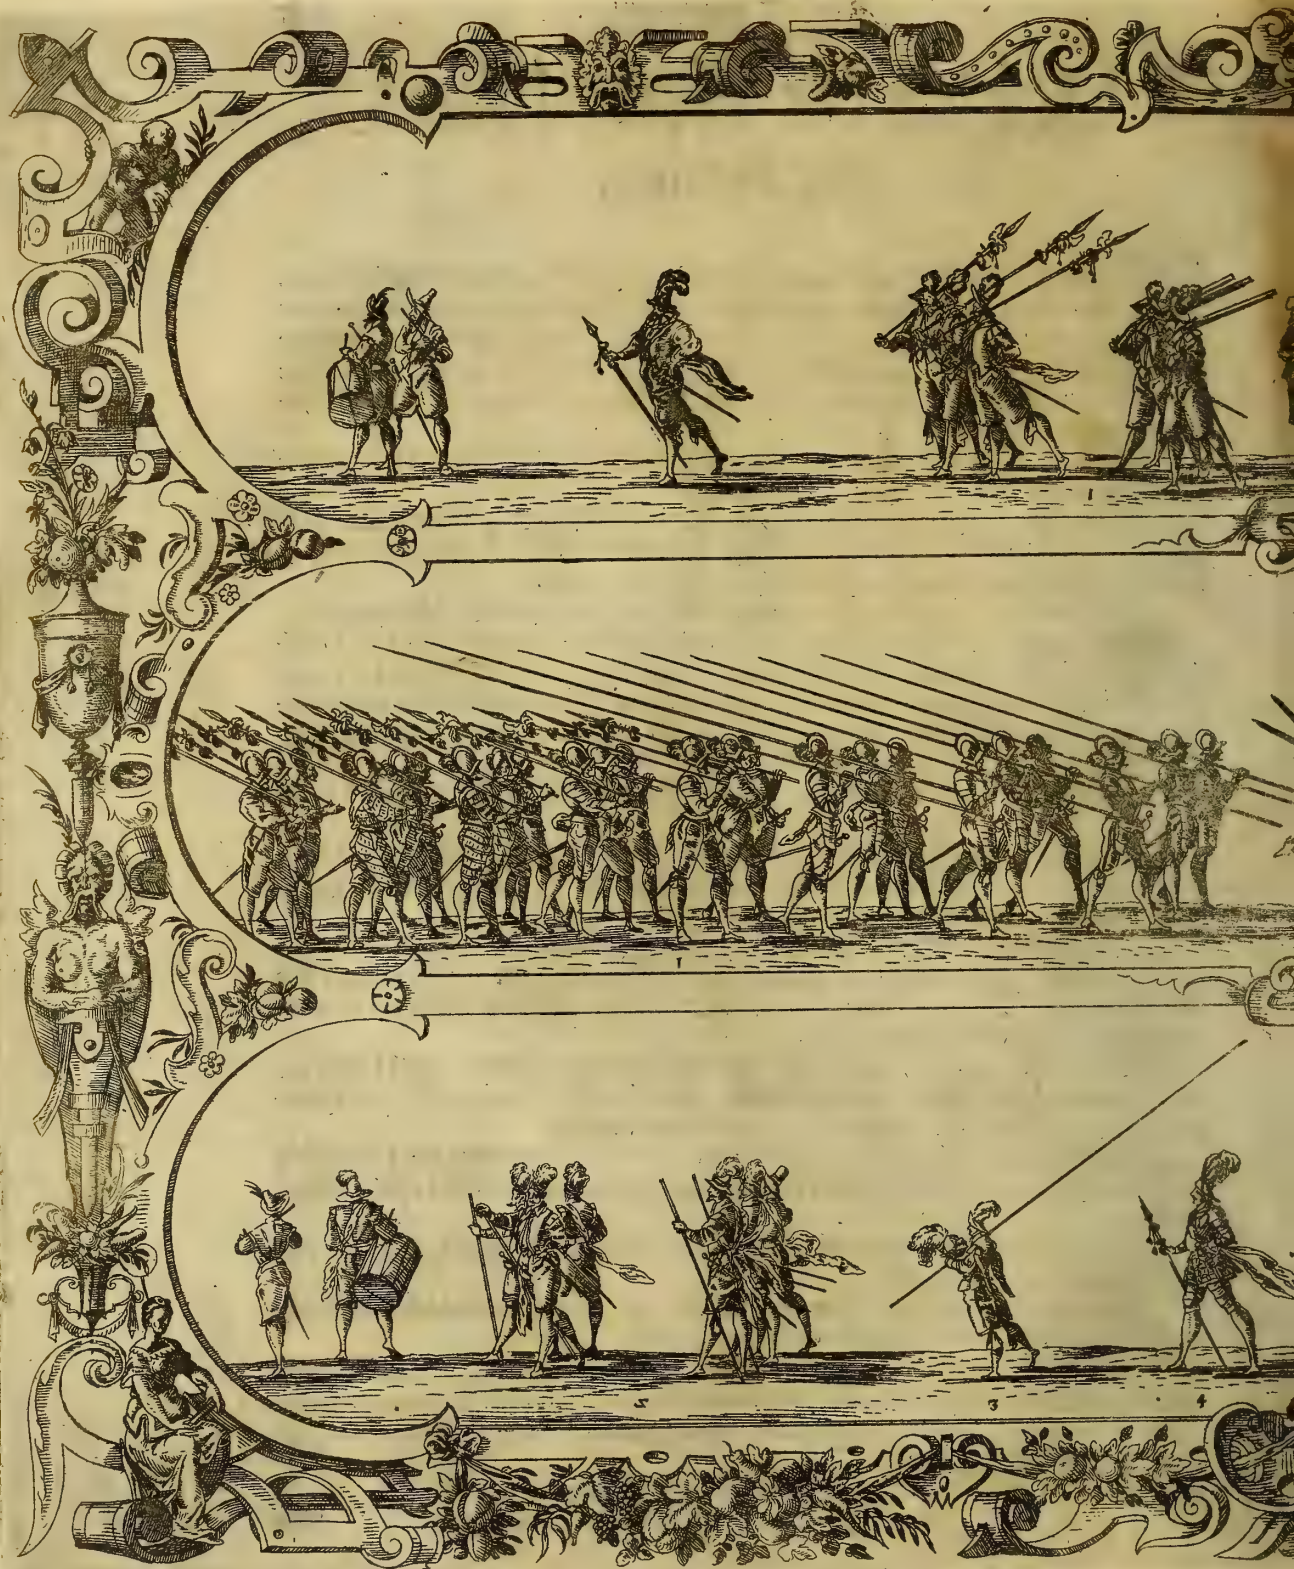 1
1
2 3 4